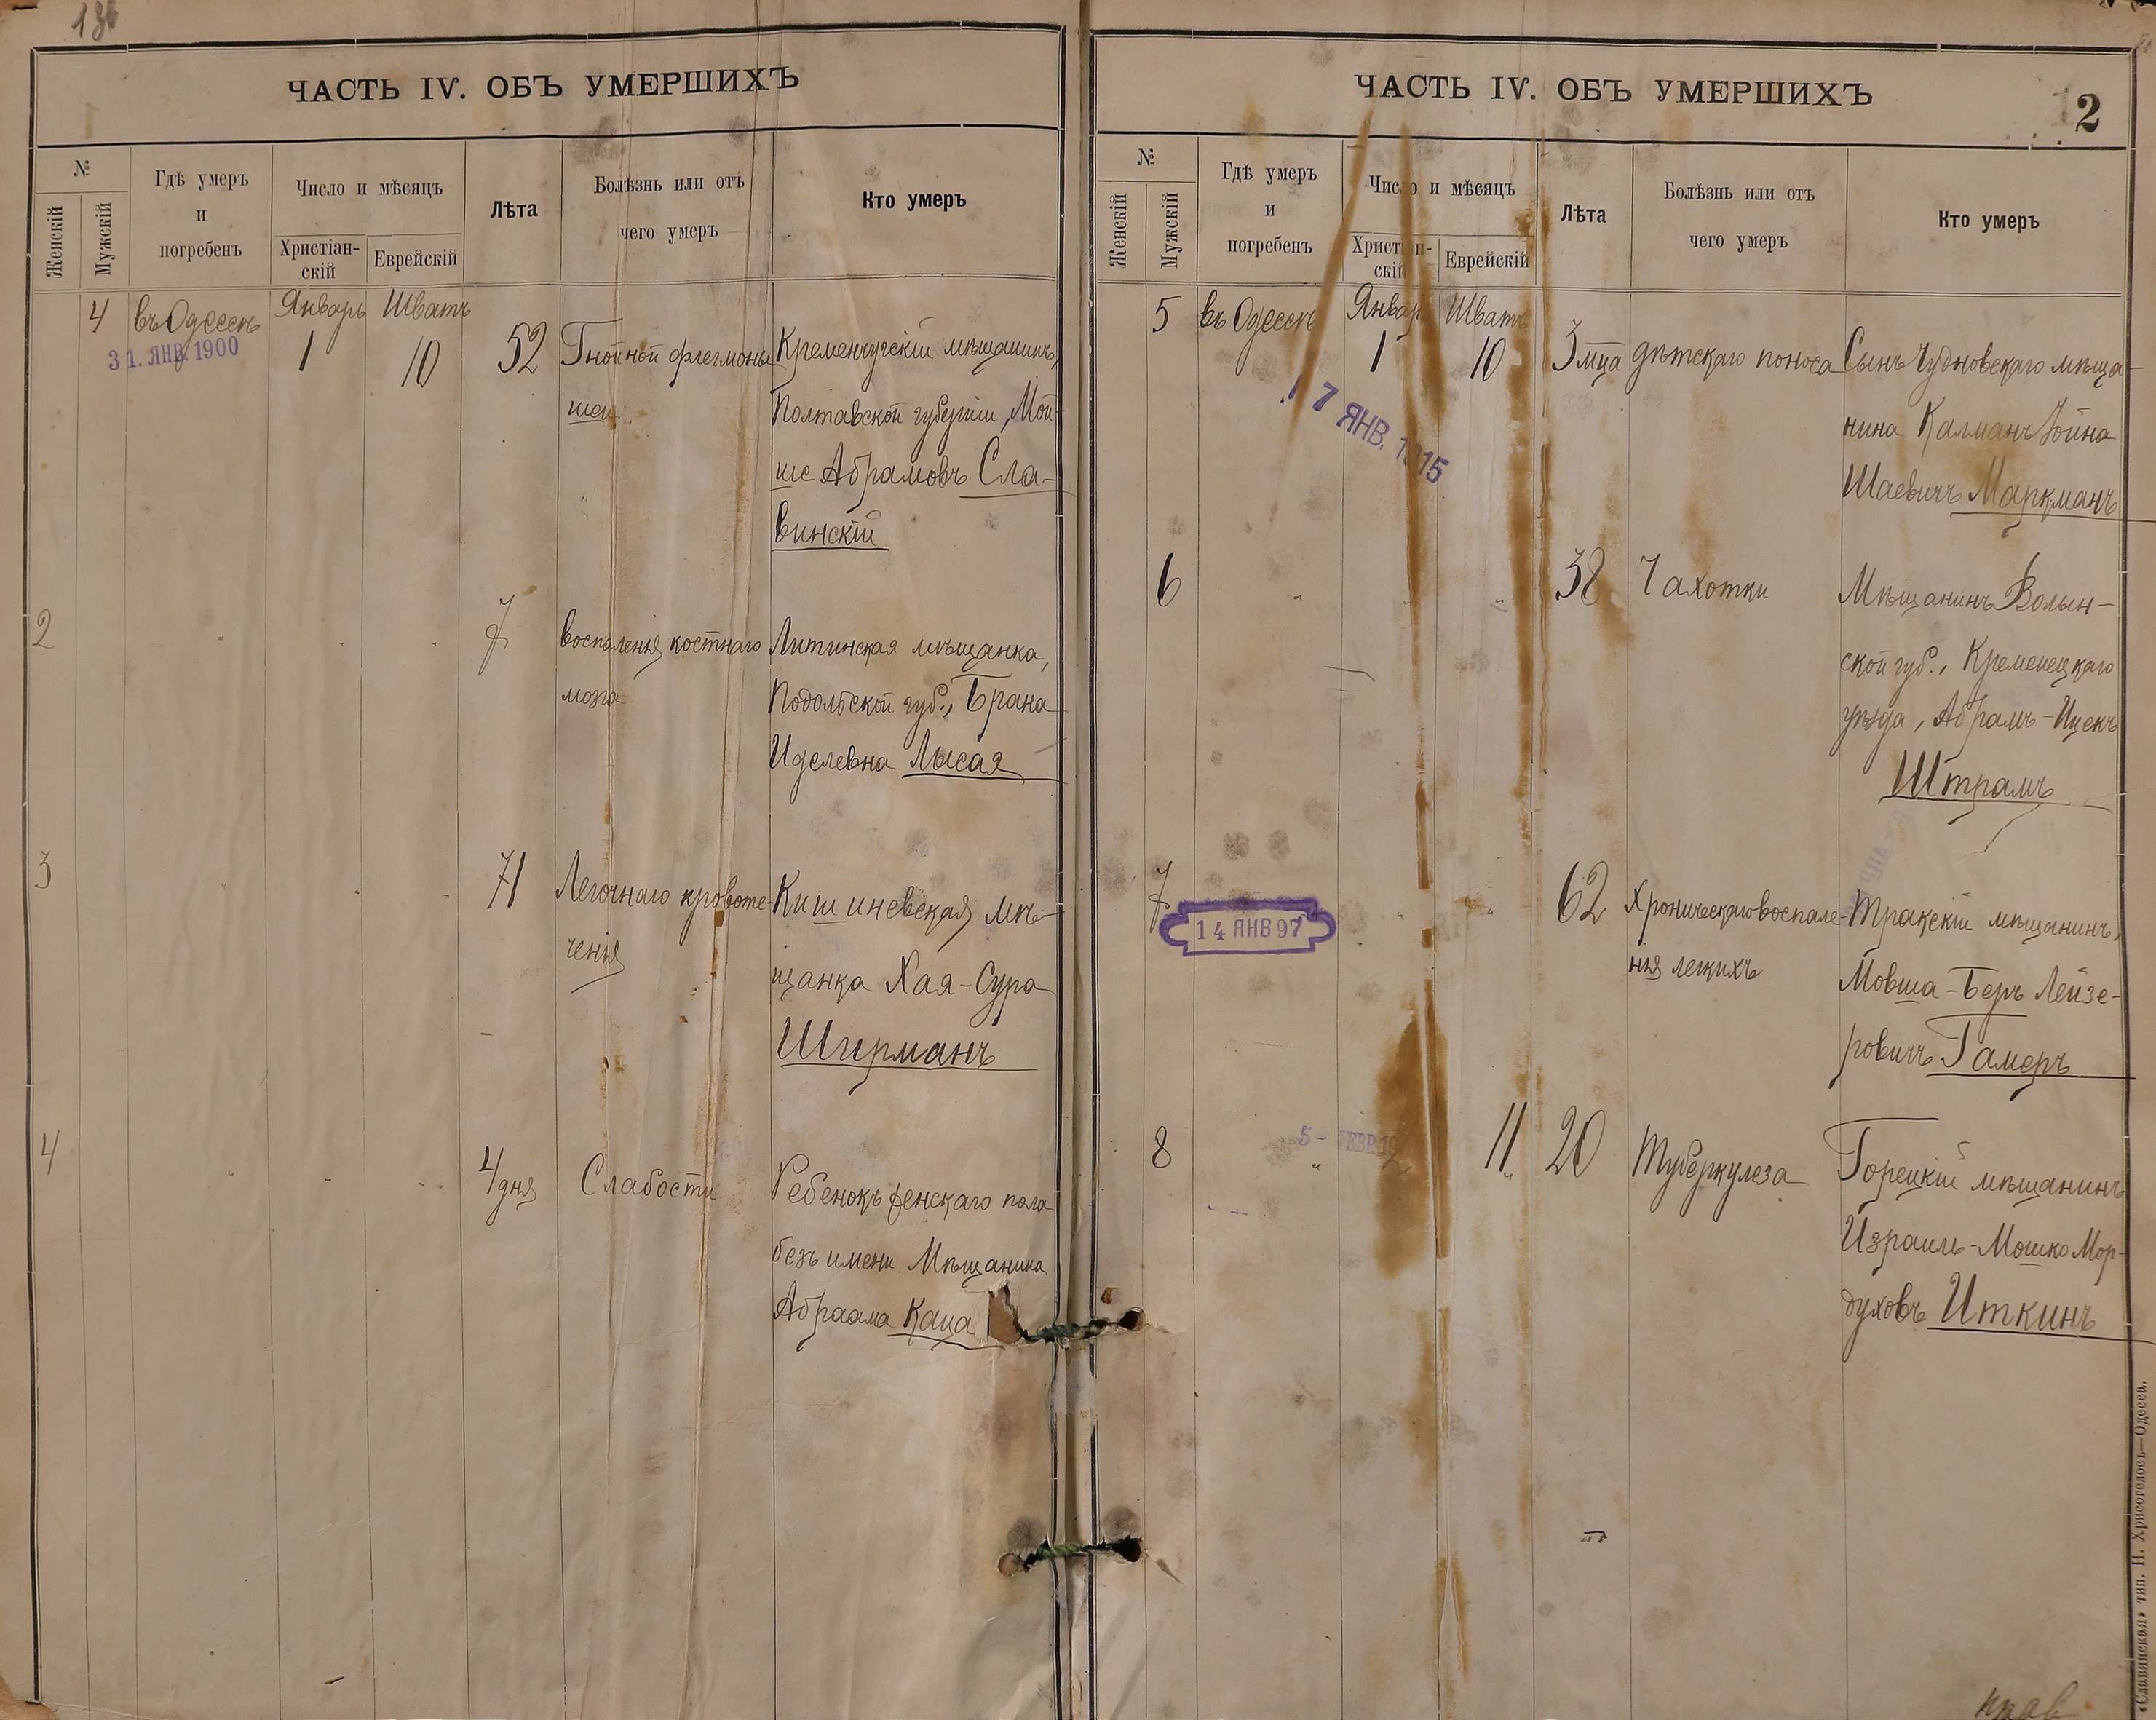 ЧАСТЬ IV. ОБЪ УМЕРШИХЪ
№
Женскій
Мужскій
Гдѣ умеръ
и
погребенъ
Число и мѣсяцъ
Христіан-
скій
Еврейскій
Лѣта
Болѣзнь или отъ
чего умеръ
Кто умеръ
4 въ Одессѣ Январь 1 Шватъ 10 52
31. ЯНВ. 1900
Гнойной флегмоны
шеи
Кременчугскій мѣщанинъ,
Полтавской губерніи, Мой-
ше Абрамовъ Сла-
винскій
2 " " " 7
воспаленія костнаго
мозга
Литинская мѣщанка,
Подольской губ., Брана
Иделевна Лысая
3 " " " 71
Легочнаго кровоте-
ченія
Кишиневская мѣ-
щанка Хая-Сура
Ширманъ
4 " " " 4 дня
Слабости
Ребенокъ женскаго пола
безъ имени Мѣщанина
Абраама Каца
ЧАСТЬ IV. ОБЪ УМЕРШИХЪ
2
№
Женскій
Мужскій
Гдѣ умеръ
и
погребенъ
Число и мѣсяцъ
Христіан-
скій
Еврейскій
Лѣта
Болѣзнь или отъ
чего умеръ
Кто умеръ
5 въ Одессѣ Январь 1 Шватъ 10 3 мца
17 ЯНВ. 1915
дѣтскаго поноса
Сынъ Чудновскаго мѣща-
нина Калманъ Іойна
Шаевичъ Маркманъ
6 " " " 38
Чахотки
Мѣщанинъ Волын-
ской губ., Кременецкаго
уѣзда, Абрамъ-Ицекъ
Штрамъ
7 " " 62
14 ЯНВ 97
Хроническаго воспале-
нія легкихъ
Тракскій мѣщанинъ,
Мовша-Беръ Лейзе-
ровичъ Гамеръ
8 " 2 11 20
5 - ФЕВР.
Туберкулеза
Горецкій мѣщанинъ
Израиль-Мошко Мор-
духовъ Иткинъ
«Славянская» тип. Н. Хрисогелосъ—Одесса.